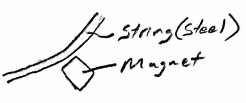 String(Steel)
Magnet